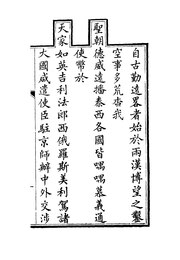 自古勤遠略者始於兩漢博望之鑿
空事多荒沓我
聖朝德威遠播泰西各國皆喁喁慕義通
使幣於
天家如英吉利法郎西俄羅斯美利駕諸
大國咸遣使臣駐京師辦中外交涉